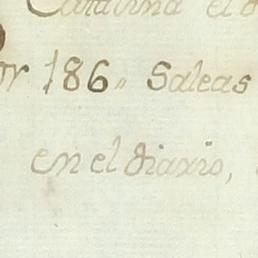 Catalina el
186,, Saleas
en el diario,